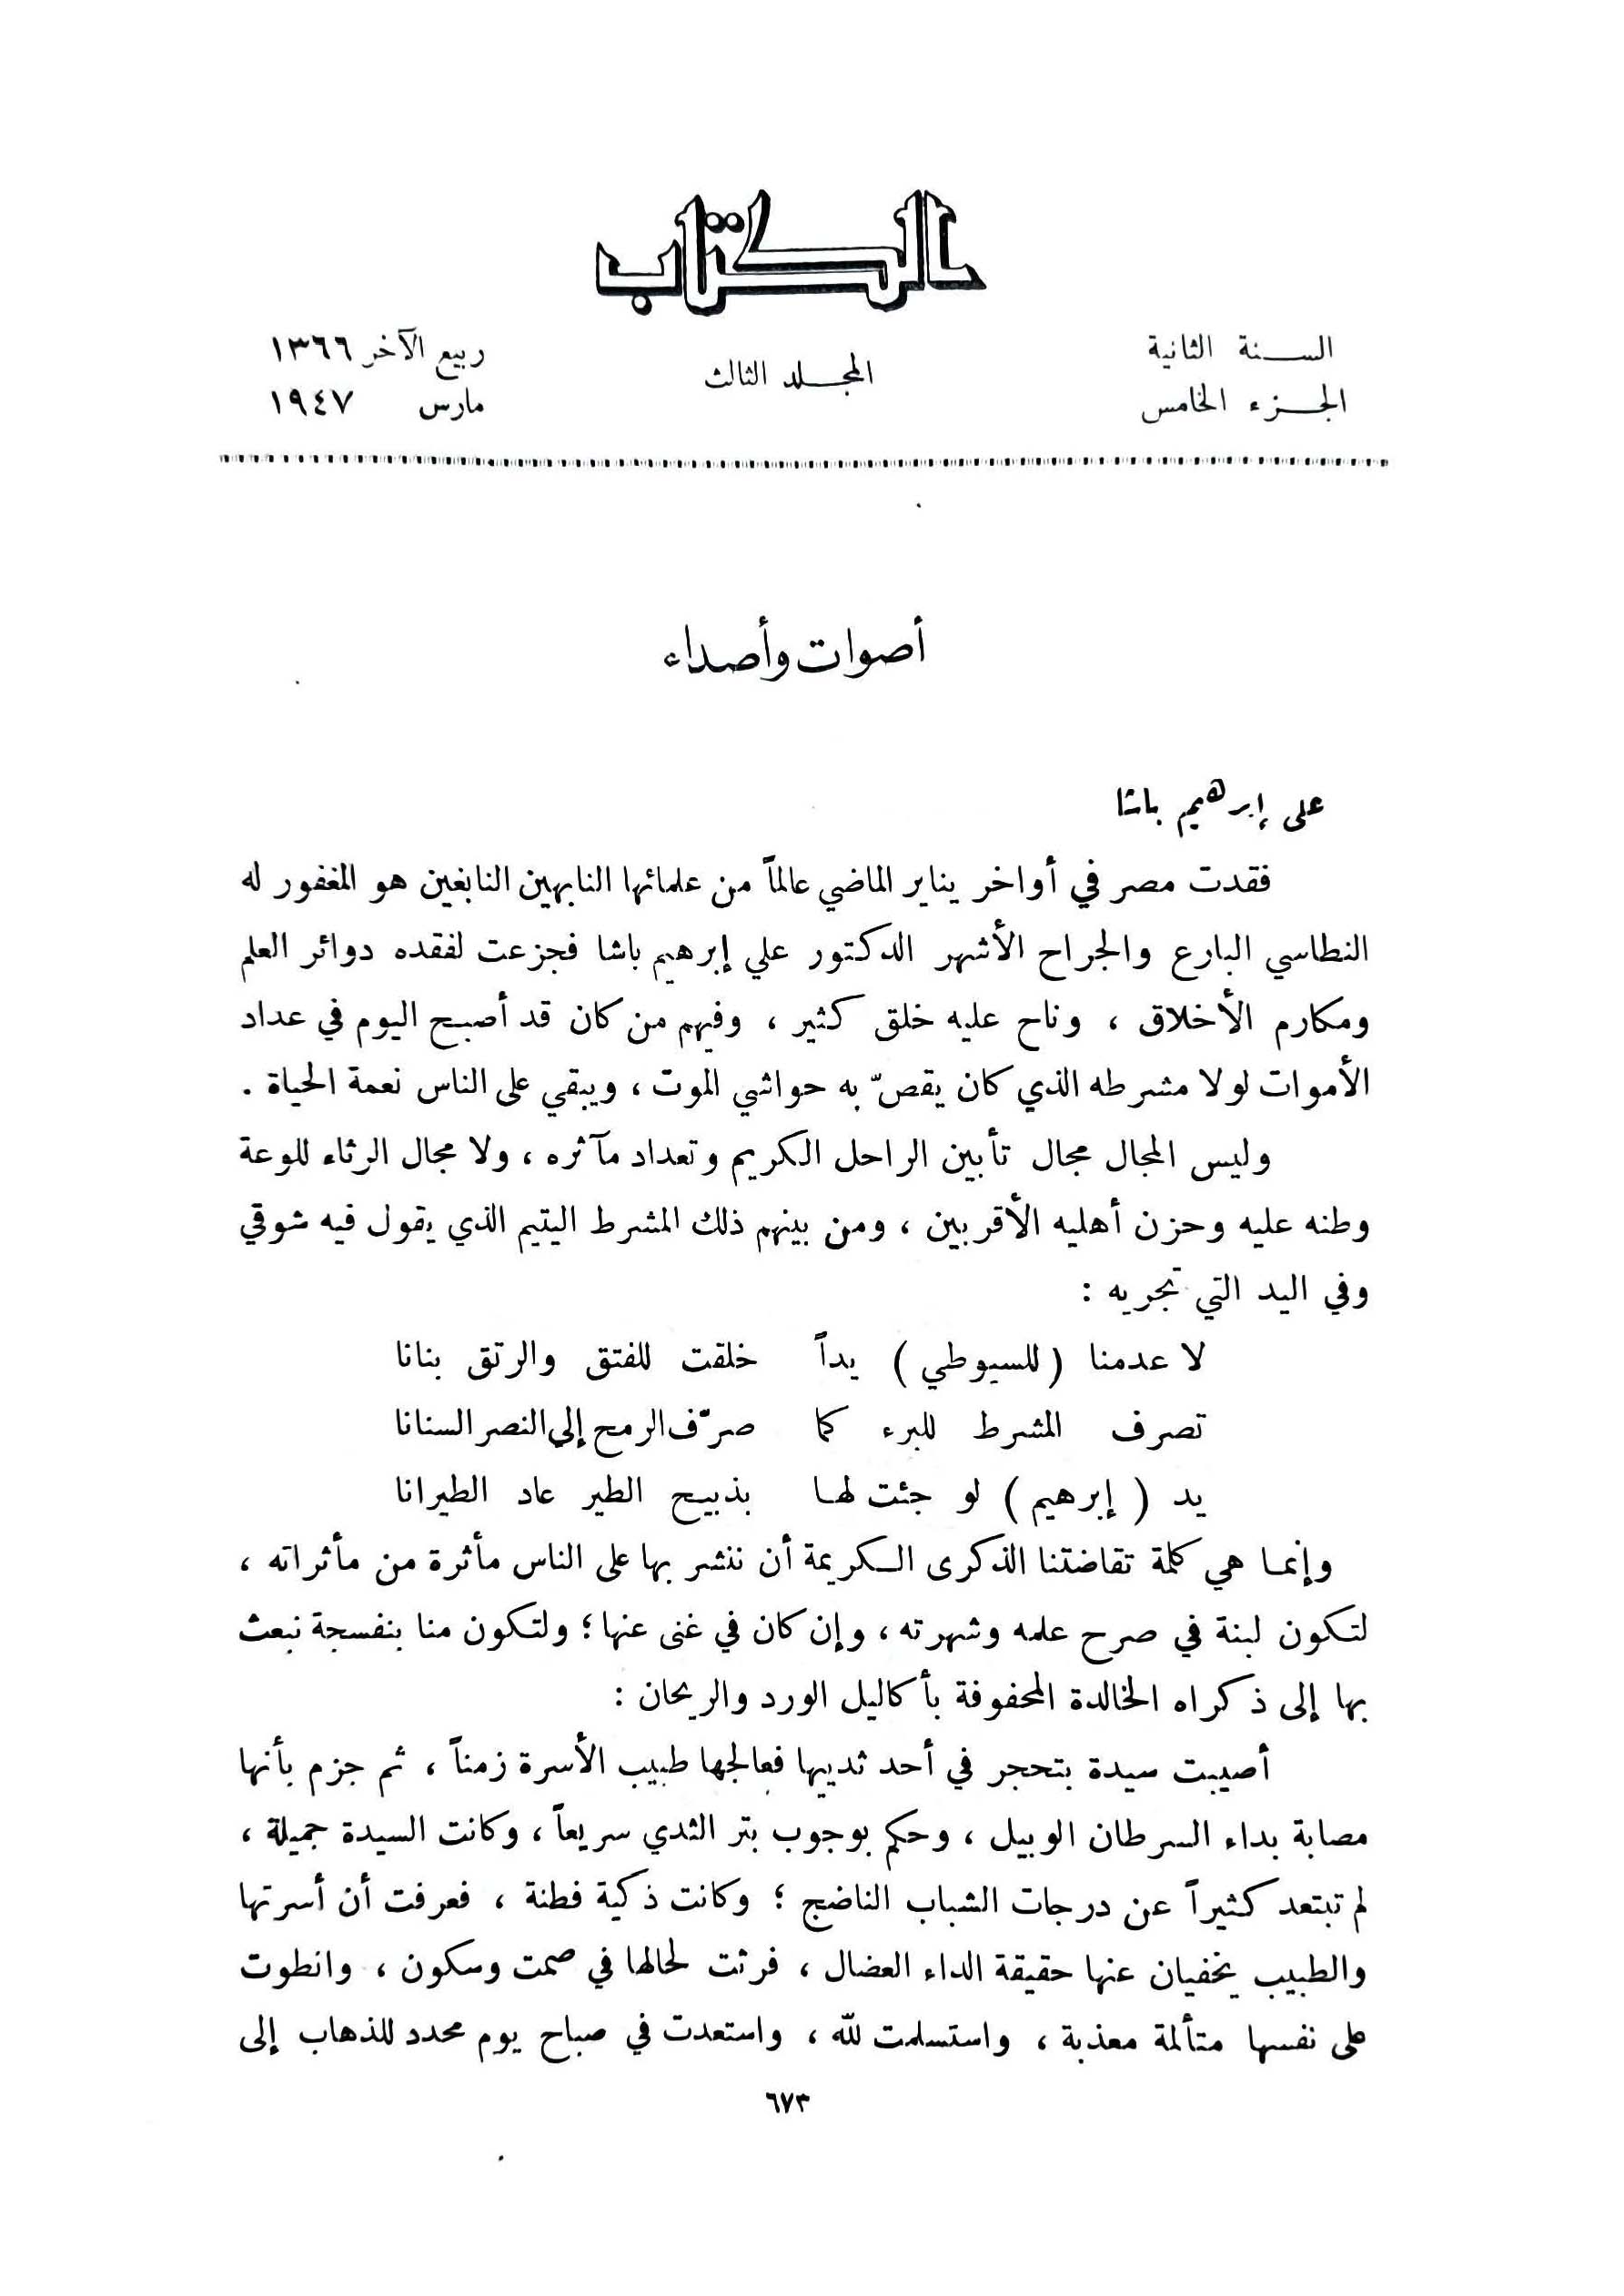 الكتاب
السنة الثانية
الجزء الخامس
المجلد الثالث
ربيع الآخر ١٣٦٦
مارس ١٩٤٧
أصوات وأصداء
على إبرهيم باشا
فقدت مصر في أواخر يناير الماضي عالماً من علمائها النابهين النابغين هو المغفور له
النطاسي البارع والجراح الأشهر الدكتور علي إبرهيم باشا فجزعت لفقده دوائر العلم
ومكارم الأخلاق ، وناح عليه خلق كثير ، وفيهم من كان قد أصبح اليوم في عداد
الأموات لولا مشرطه الذي كان يقصّ به حواشي الموت ، ويبقي على الناس نعمة الحياة .
وليس المجال مجال تأبين الراحل الكريم وتعداد مآثره ، ولا مجال الرثاء للوعة
وطنه عليه وحزن أهليه الأقربين ، ومن بينهم ذلك المشرط اليتيم الذي يقول فيه شوقي
وفي اليد التي تجريه :
لا عدمنا ( للسيوطي ) يداً خلقت للفتق والرتق بنانا
تصرف المشرط للبرء كما صرّف الرمح إلى النصر السنانا
يد ( إبرهيم ) لو جئت لها بذبيح الطير عاد الطيرانا
وإنما هي كلمة تقاضتنا الذكرى الكريمة أن ننشر بها على الناس مأثرة من مأثراته ،
لتكون لبنة في صرح علمه وشهرته ، وإن كان في غنى عنها ؛ ولتكون منا بنفسجة نبعث
بها إلى ذكراه الخالدة المحفوفة بأكاليل الورد والريحان :
أصيبت سيدة بتحجر في أحد ثدييها فعالجها طبيب الأسرة زمناً ، ثم جزم بأنها
مصابة بداء السرطان الوبيل ، وحكم بوجوب بتر الثدي سريعاً ، وكانت السيدة جميلة ،
لم تبتعد كثيراً عن درجات الشباب الناضج ؛ وكانت ذكية فطنة ، فعرفت أن أسرتها
والطبيب يخفيان عنها حقيقة الداء العضال ، فرثت لحالها في صمت وسكون ، وانطوت
على نفسها متألمة معذبة ، واستسلمت لله ، واستعدت في صباح يوم محدد للذهاب إلى
٦٧٣